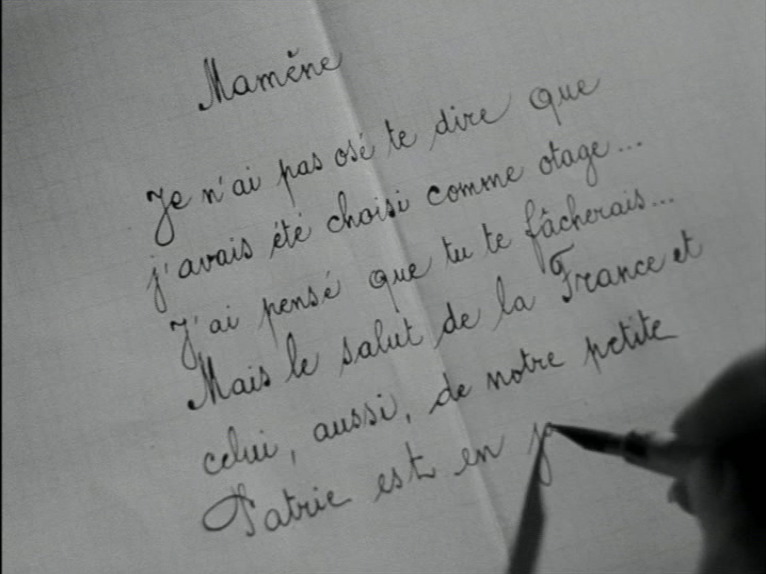 Mamène
Je n'ai pas osé te dire que
j'avais été choisi comme otage...
J'ai pensé que tu te fâcherais...
Mais le salut de la France et
celui, aussi, de notre petite
Patrie est en j